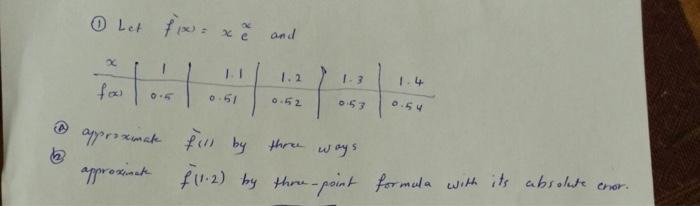 ① Let f̀(x) = x eˣ and
x | 1 | 1.1 | 1.2 | 1.3 | 1.4
f(x) | 0.5 | 0.51 | 0.52 | 0.53 | 0.54
ⓐ approximate f̀(1) by three ways
ⓑ approximate f̀(1.2) by three-point formula with its absolute error.